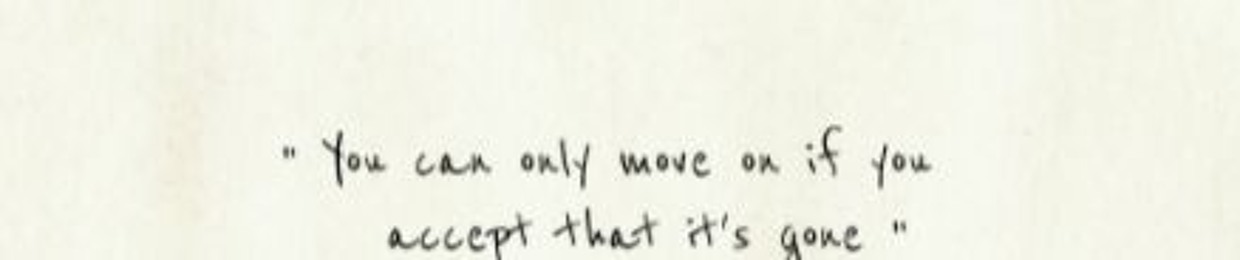 " You can only move on if you
accept that it's gone "